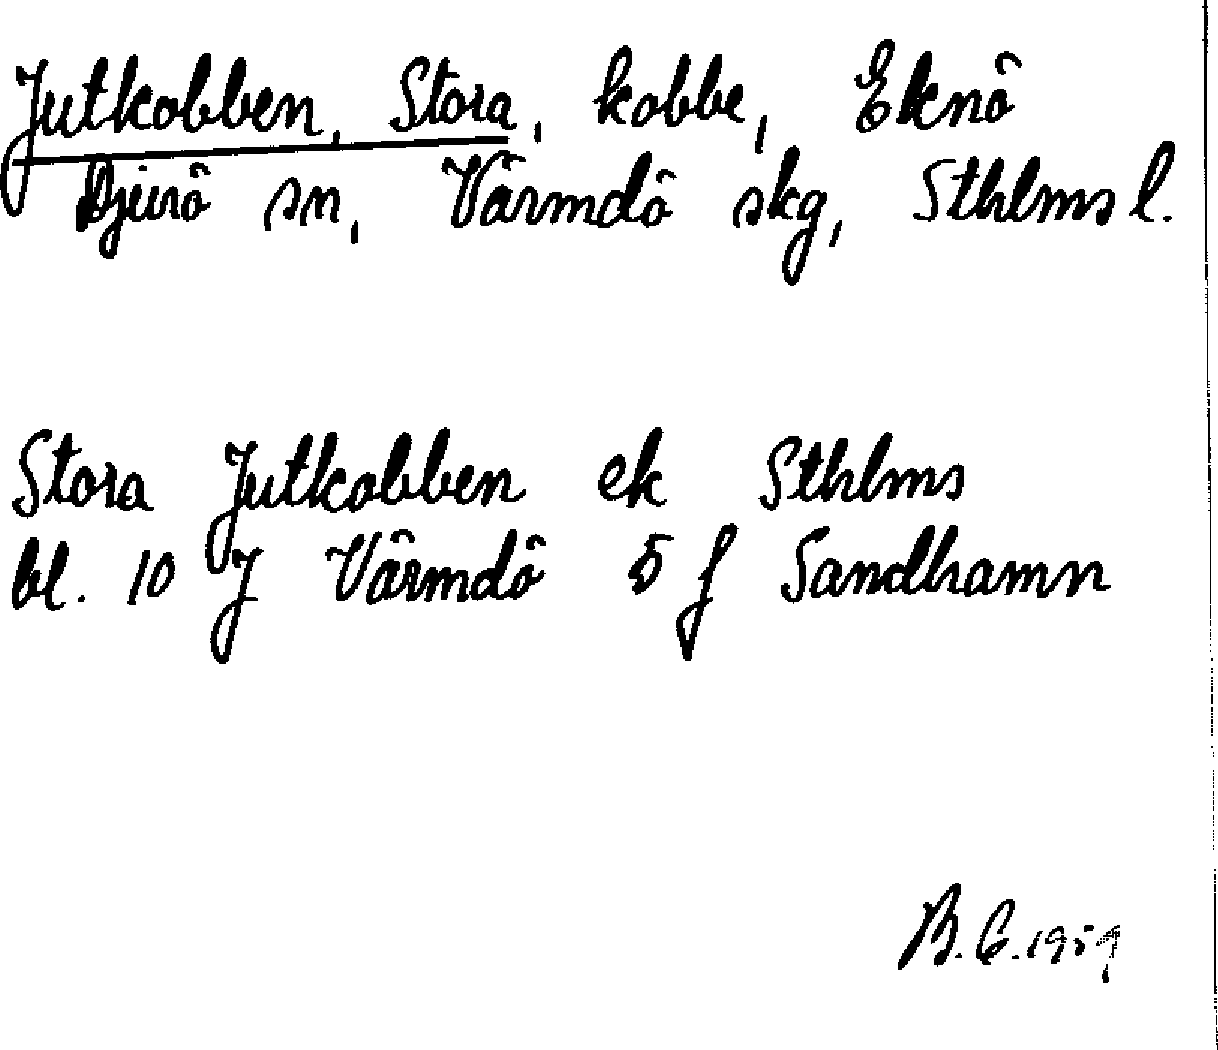 Jutkobben, Stora, kobbe, Eknö
Djurö sn, Värmdö skg, Sthlms l.
Stora Jutkobben ek Sthlms
bl. 10 J Värmdö 5 f Sandhamn
B. G. 1959